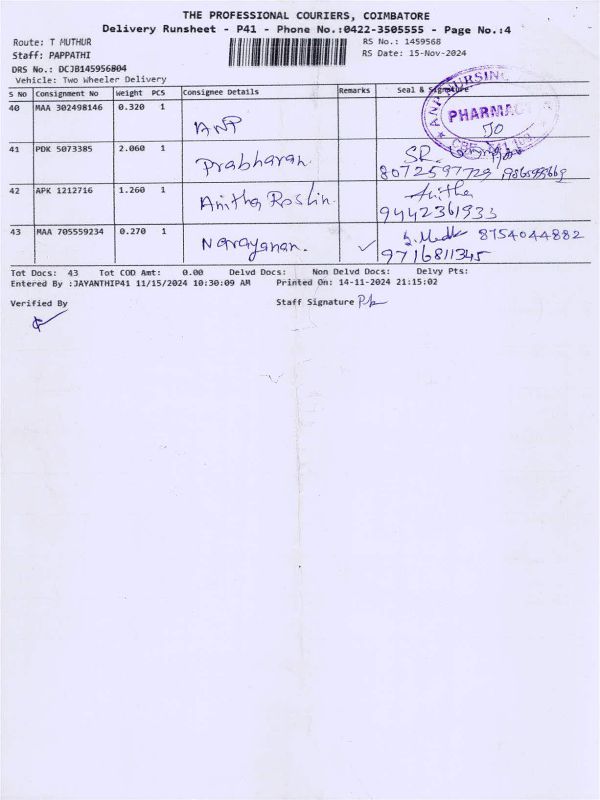 THE PROFESSIONAL COURIERS, COIMBATORE
Delivery Runsheet - P41 - Phone No.:0422-3505555 - Page No.:4
Route: T MUTHUR RS No.: 1459568
Staff: PAPPATHI RS Date: 15-Nov-2024
DRS No.: DCJB145956804
Vehicle: Two Wheeler Delivery
S No Consignment No Weight PCS Consignee Details Remarks Seal & Signature
40 MAA 302498146 0.320 1
ANP
PHARMAC
41 PDK 5073385 2.060 1
Prabharan. SR.
8072597729
42 APK 1212716 1.260 1
Anitha Roslin. Anitha
9442361933
43 MAA 705559234 0.270 1
Narayanan. 8754044882
9716811345
Tot Docs: 43 Tot COD Amt: 0.00 Delvd Docs: Non Delvd Docs: Delvy Pts:
Entered By :JAYANTHIP41 11/15/2024 10:30:09 AM Printed On: 14-11-2024 21:15:02
Verified By Staff Signature